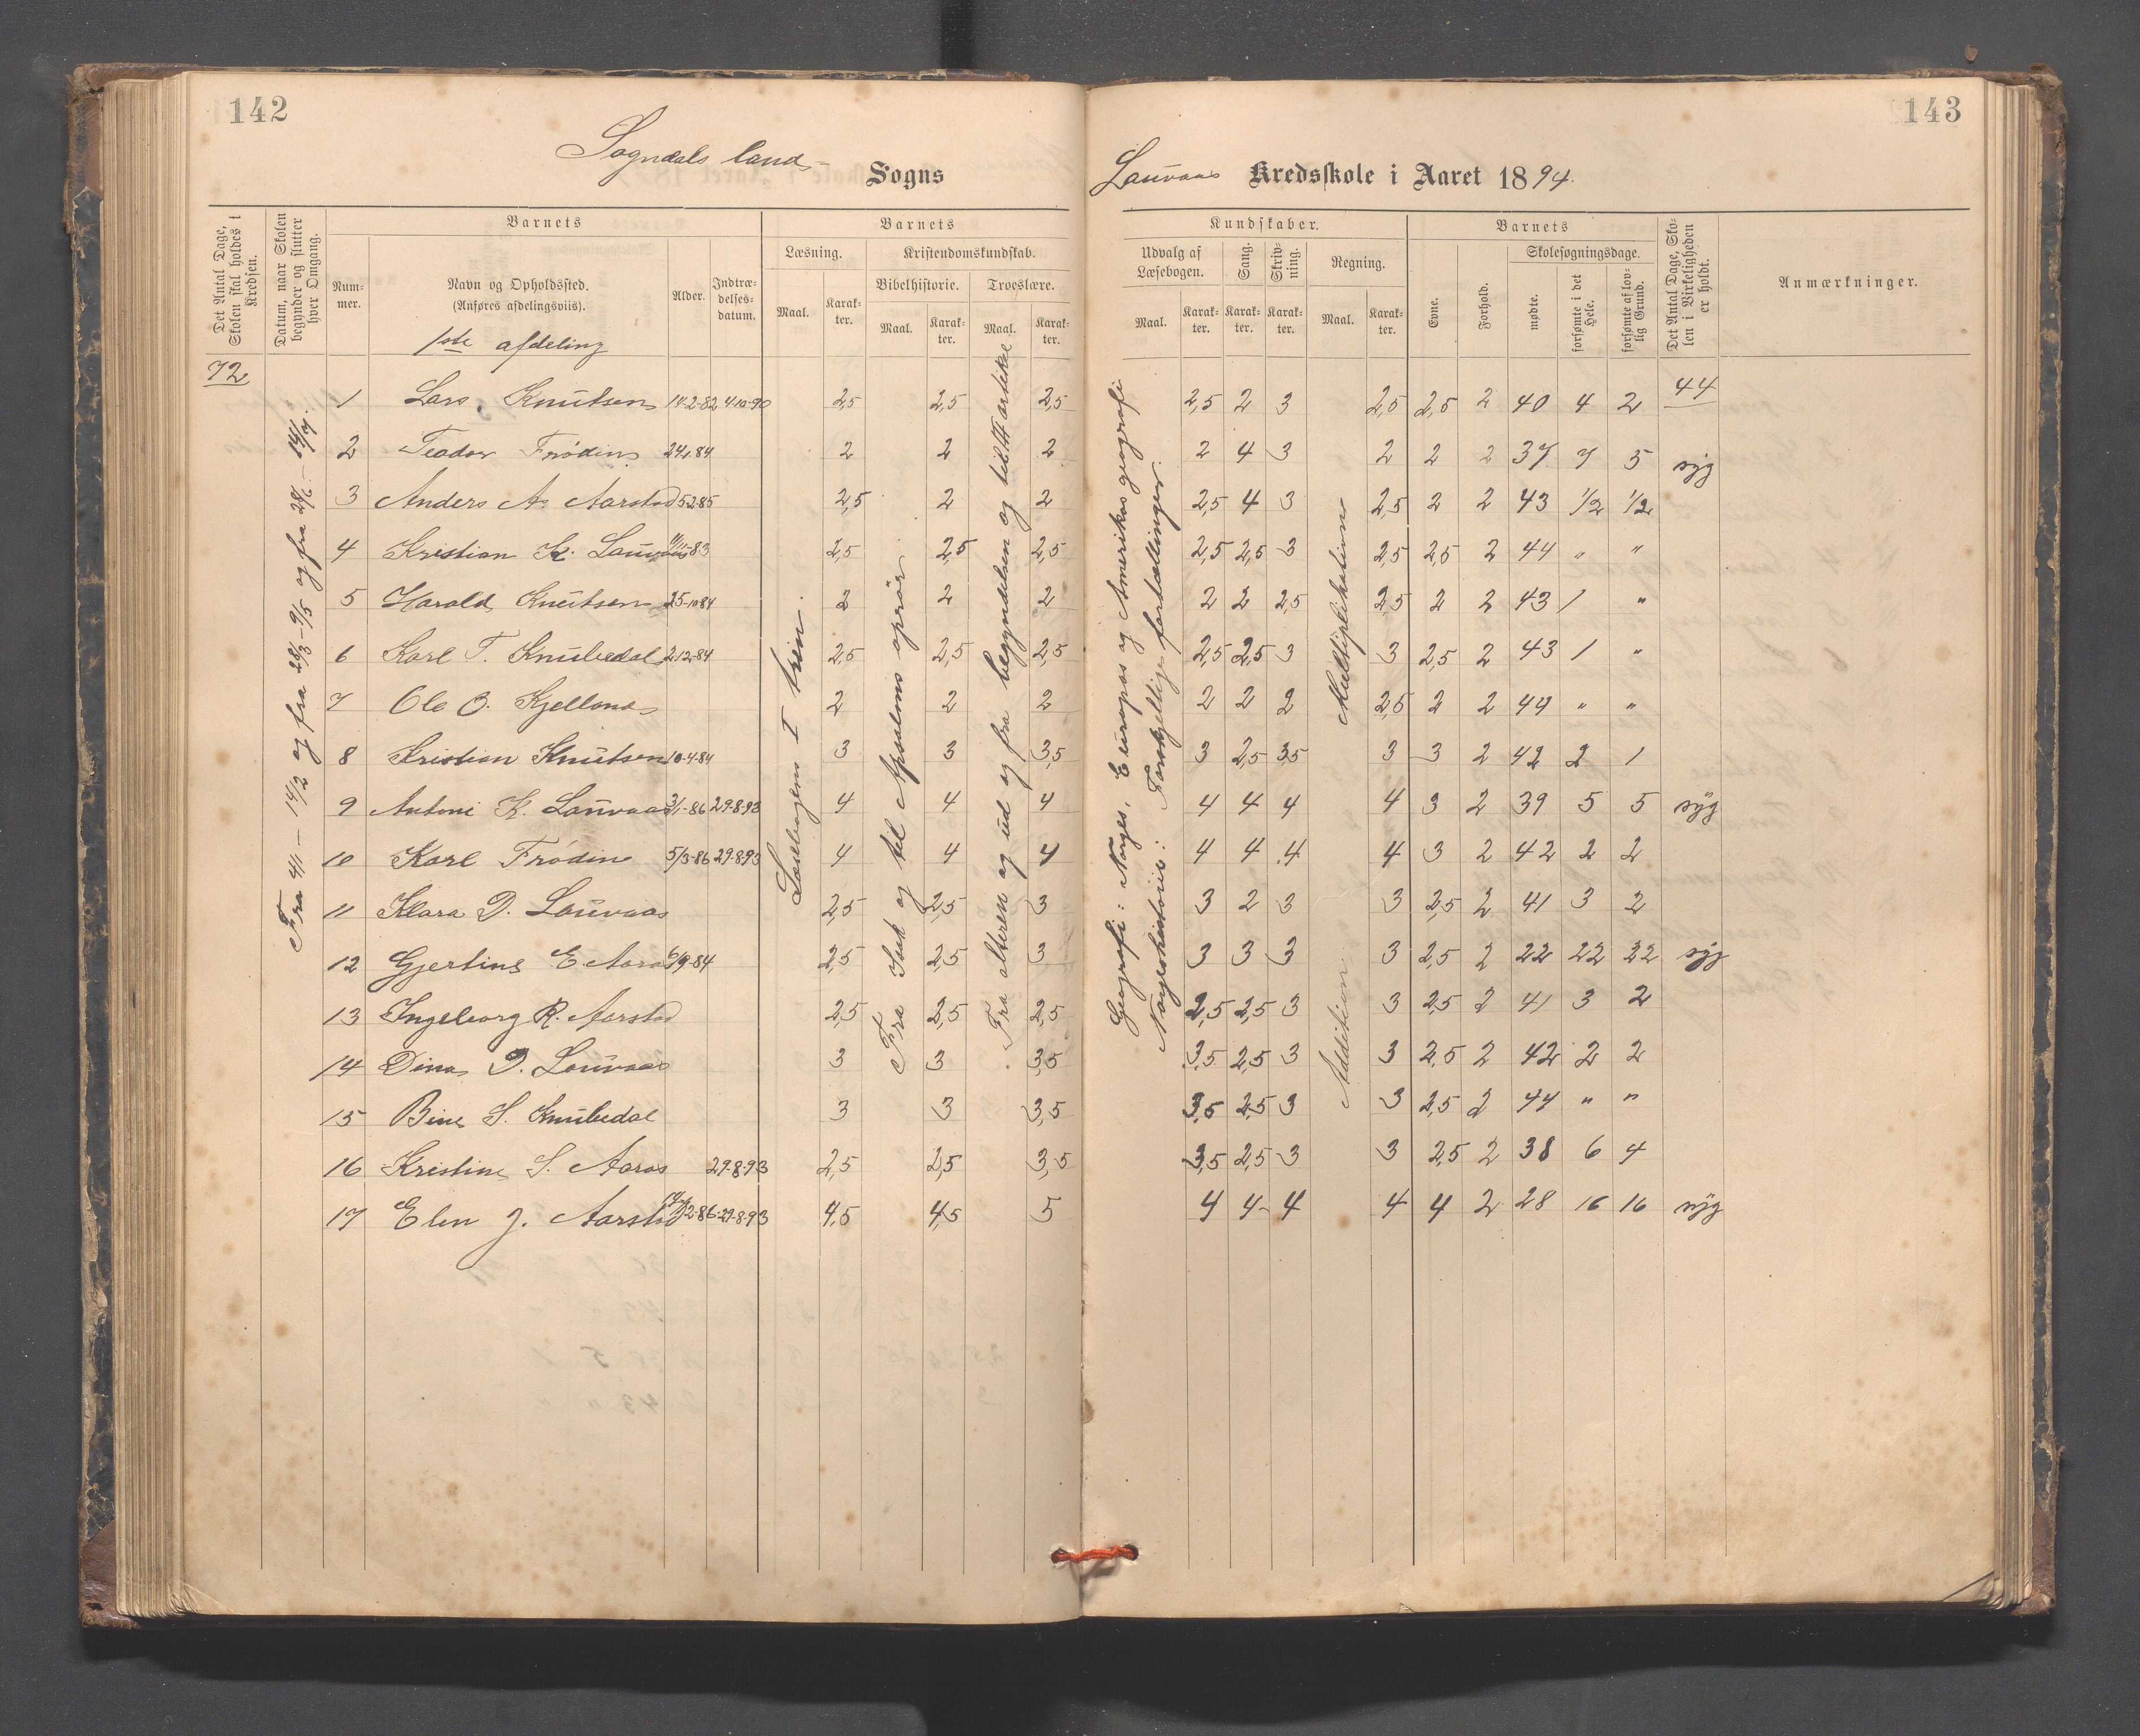 142
Sogndals land- Sogns
Det Antal Dage, Skolen skal holdes i Kredsen.
Datum, naar Skolen begynder og slutter hver Omgang.
Barnets
Nummer.
Navn og Opholdssted.
(Anføres afdelingsviis).
Alder.
Indtrædelsesdatum.
Barnets
Læsning.
Kristendomskundskab.
Bibelhistorie. Troeslære.
Maal. Karakter. Maal. Karakter. Maal. Karakter.
1ste afdeling
72
Fra 4/1 - 14/2 og fra 28/3 - 9/5 og fra
Læsebogens I trin.
Fra Saul og til Apsalons oprør.
Fra Alteren og ud og fra begyndelsen og til artikel
1 Lars Knutsen 14-2-82 4-10-90 2,5 2,5 2,5
2 Teodor Frødin 2 2 2
3 Anders A. Aarstad 5-2-85 2,5 2 2
4 Kristian K. Lauvaas 2,5 2,5 2,5
5 Harald Knutsen 25-10-84 2 2 2
6 Karl T. Knubedal 2,5 2,5 2,5
7 Ole O. Kjellons 2 2 2
8 Kristian Knutsen 10-4-84 3 3 3,5
9 Antoni K. Lauvaas 3/1-86 29-8-93 4 4 4
10 Karl Frödin 5/3-86 29-8-93 4 4 4
11 Klara D. Lauvaas 2,5 2,5 3
12 Gjertine E. Aaros 6/9-84 2,5 2,5 3
13 Ingeborg R. Aarstad 2,5 2,5 2,5
14 Dina D. Lauvaas 3 3 3,5
15 Bine S. Knubedal 3 3 3,5
16 Kristine S. Aaros 29-8-93 2,5 2,5 3,5
17 Elen J. Aarstad 29-8-93 4,5 4,5 5
143
Lauvaas Kredsskole i Aaret 1894.
Kundskaber.
Udvalg af Læsebogen.
Sang.
Skrivning.
Regning.
Maal. Karakter. Karakter. Karakter. Maal. Karakter.
Barnets
Evne.
Forhold.
Skolesøgningsdage.
mødte.
forsømte i det Hele.
forsømte af lovlig Grund.
Det Antal Dage, Skolen i Virkeligheden er holdt.
Anmærkninger.
Geografi: Norges, Europas og Amerikas geografi
Norgeshistorie: Forskjellige fortællinger.
Multiplikation
Addition
2,5 2 3 2,5 2,5 2 40 4 2 44
2 4 3 2 2 2 37 7 5 syg
2,5 4 3 2,5 2 2 43 1/2 1/2
2,5 2,5 3 2,5 2,5 2 44 " "
2 2 2,5 2,5 2 2 43 1 "
2,5 2,5 3 3 2,5 2 43 1 "
2 2 2 2,5 2 2 44 " "
3 2,5 3,5 3 3 2 42 2 1
4 4 4 4 3 2 39 5 5 syg
4 4 4 4 3 2 42 2 2
3 2 3 3 2,5 2 41 3 2
3 3 3 3 2,5 2 22 22 22 syg
2,5 2,5 3 3 2,5 2 41 3 2
3,5 2,5 3 3 2,5 2 42 2 2
3,5 2,5 3 3 2,5 2 44 " "
3,5 2,5 3 3 2,5 2 38 6 4
4 4 4 4 4 2 28 16 16 syg